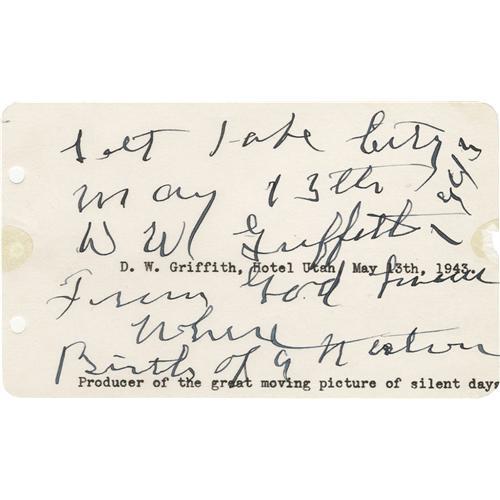 Salt Lake City
May 13th 1943
D W Griffith
D. W. Griffith, Hotel Utah, May 13th, 1943.
From God
Where
Birth of a Nation
Producer of the great moving picture of silent days